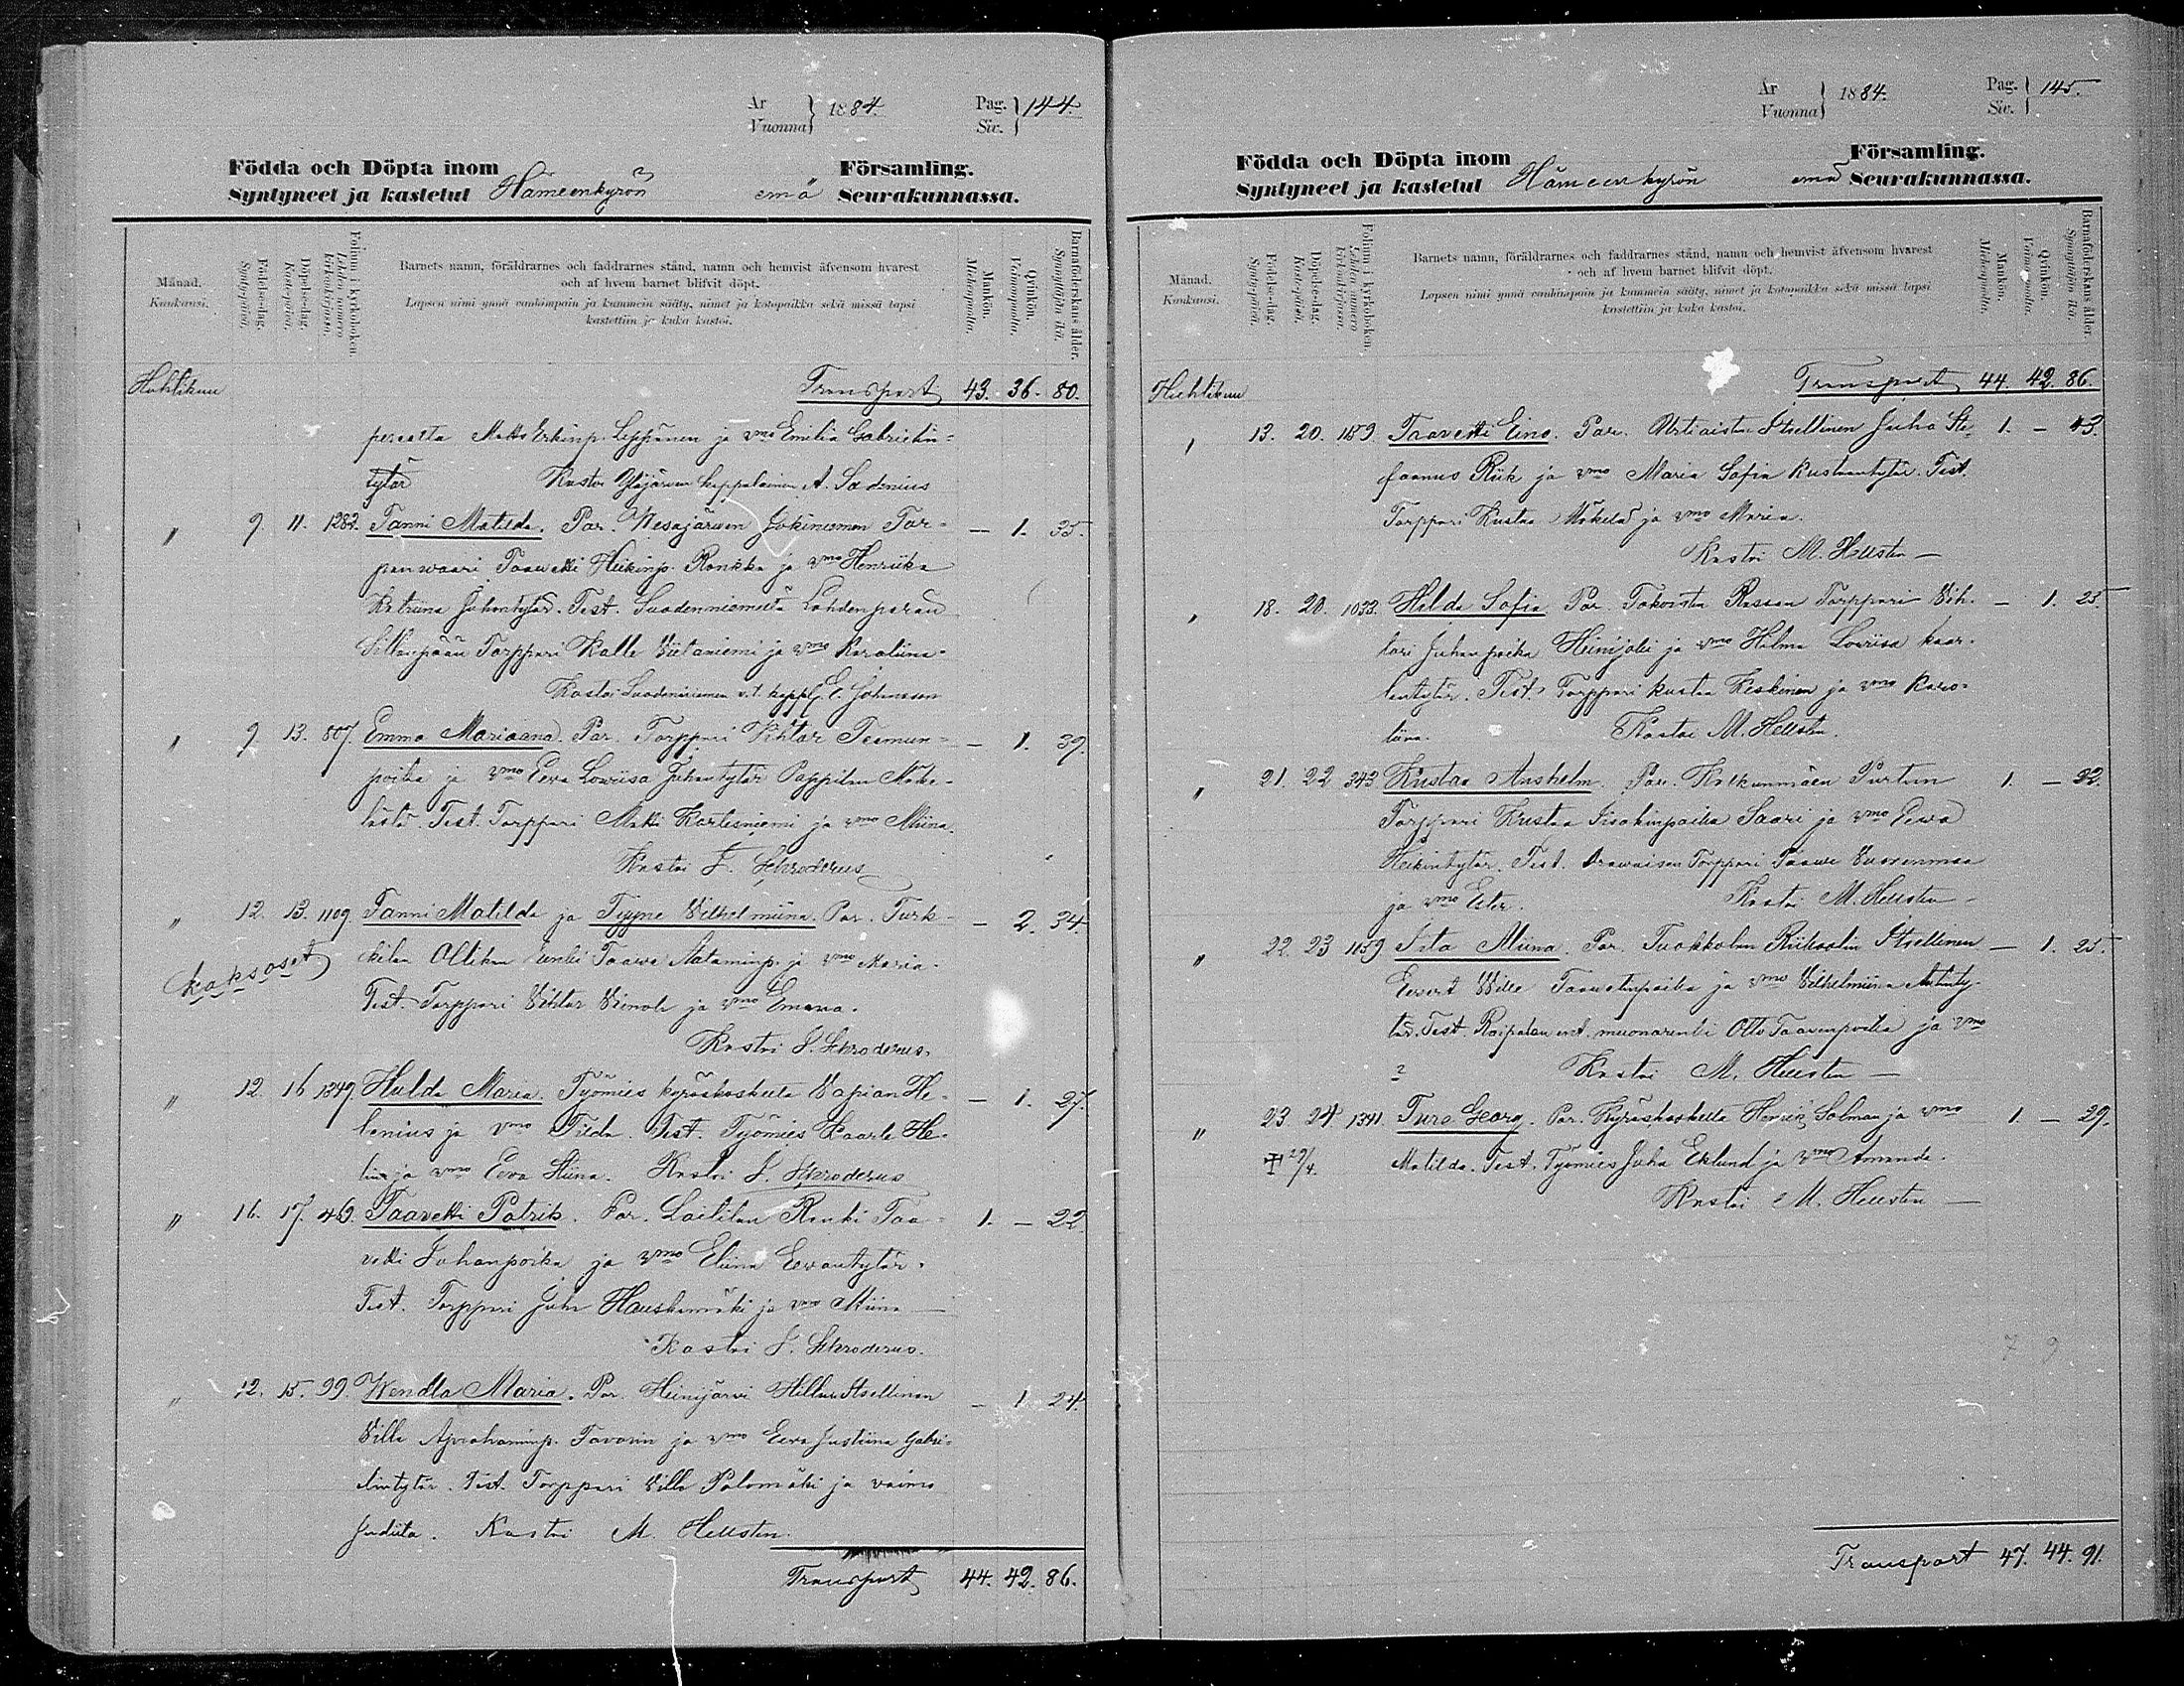 År
Vuonna } 1884.
Pag.
Siv. } 144.
Födda och Döpta inom
Syntyneet ja kastetut Hämeenkyrön emä Församling.
Seurakunnassa.
Månad.
Kuukausi.
Födelse-dag.
Syntypäivä.
Döpelse-dag.
Kastepäivä.
Folium i kyrkoboken.
Lehden numero kirkonkirjassa.
Barnets namn, föräldrarnes och faddrarnes stånd, namn och hemvist äfvensom hvarest
och af hvem barnet blifvit döpt.
Lapsen nimi ynnä vanhimpain ja kummein sääty, nimet ja kotopaikka sekä missä lapsi
kastettiin ja kuka kastoi.
Mankön.
Miehenpuolia.
Qvinkön.
Vaimonpuolia.
Barnaföderskans ålder.
Synnyttäjän ikä.
Huhtikuu Transport 43. 36. 80.
Matts Erkinp. Leppänen ja vmo Emilia Gabrielin=
tytär Kastoi Ylöjärven kappalainen A. Sadenius
" 9. 11. 1282. Fanni Matilda. Par. Wesajärven Jokiniemen Tor=
panwaari Taavetti Heikinp. Ronkka ja vmo Henriika
Katriina Juhontytär. Test. Suodenniemeltä Lahdenperän
Sillanpään Torppari Kalle Viitaniemi ja vmo Karoliina.
Kastoi Suodenniemen v.t. kappl. E. Johnsson
" 9. 13. 807. Emma Mariaana. Par. Torppari Vihtor Teemun= — 1. 39.
poika ja vmo Eeva Loviisa Juhantytär Pappilan Mäke-
lästä. Test. Torppari Matti Kortesniemi ja vmo Miina.
Kastoi F. Schroderus
" 12. 13. 1109. Fanni Matilda ja Tyyne Vilhelmiina. Par. Turk- — 2. 34.
kaksoset kilan Ollikan renki Taave Aataminp. ja vmo Maria.
Test. Torppari Vihtor Vainola ja vmo Emma.
Kastoi F. Schroderus.
" 12. 16. 1349. Hulda Maria. Työmies kyröskoskelta Vapian He- — 1. 27.
lenius ja vmo Tilda. Test. Työmies Kaarle He-
lin ja vmo Eeva Stiina. Kastoi F. Schroderus
" 16. 17. 46. Taavetti Patrik. Par. Laitilan Renki Taa= 1. — 22.
vetti Juhanpoika ja vmo Eliina Eevantytär.
Test. Torppari Juha Hauskamäki ja vmo Miina —
Kastoi F. Schroderus.
" 12. 15. 99. Wendla Maria. Par. Heinijärvi Hillun Itsellinen — 1. 24.
Ville Aprahaminp. Tavarin ja vmo Eeva Justiina Gabri=
elintytär. Test. Torppari Ville Palomäki ja vaimo
Judiita. Kastoi M. Hellsten.
Transport 44. 42. 86.
År
Vuonna } 1884.
Pag.
Siv. } 145.
Födda och Döpta inom
Syntyneet ja kastetut Hämeenkyrön emä Församling.
Seurakunnassa.
Månad.
Kuukausi.
Födelse-dag.
Syntypäivä.
Döpelse-dag.
Kastepäivä.
Folium i kyrkoboken.
Lehden numero kirkonkirjassa.
Barnets namn, föräldrarnes och faddrarnes stånd, namn och hemvist äfvensom hvarest
och af hvem barnet blifvit döpt.
Lapsen nimi ynnä vanhimpain ja kummein sääty, nimet ja kotopaikka sekä missä lapsi
kastettiin ja kuka kastoi.
Mankön.
Miehenpuolia.
Qvinkön.
Vaimonpuolia.
Barnaföderskans ålder.
Synnyttäjän ikä.
Huhtikuu Transport 44. 42. 86.
" 13. 20. 1159. Taavetti Eino. Par. Itsellinen Juha Ste- 1. — 43.
faanus Riik ja vmo Maria Sofia Kustaantytär. Test.
Torppari Kustaa Mäkelä ja vmo Maria.
Kastoi M. Hellsten —
" 18. 20. 1033. Hilda Sofia. Par. Torppari Vih- — 1. 25.
tori Juhanpoika Heinijoki ja vmo Hilma Loviisa kaar-
lentytär. Test. Torppari kustaa Keskinen ja vmo Karo-
liina. Kastoi M. Hellsten.
" 21. 22 343. Kustaa Anshelm. Par. Kalkunmäen Purtun 1. — 32.
Torppari Kustaa Iisakinpoika Saari ja vmo Eeva
Heikintytär. Test. Torppari Taave Vuorenmaa
ja vmo Ester. Kastoi M. Hellsten —
" 22. 23 1159 Iita Miina. Par. Tuokkolan Itsellinen — 1. 25.
Evert Wille Taavetinpoika ja vmo Vilhelmiina Antinty-
tär. Test. Raipalan ent. muonarenki Otto Taavinpoika ja vmo
? Kastoi M. Hellsten —
" 23. 24 1341. Ture Georg. Par. Kyröskoskelta Henrik Solman ja vmo 1. — 29.
✝ 29/4. Matilda. Test. Työmies Juha Eklund ja vmo Amanda.
Kastoi M. Hellsten —
7 9
Transport 47. 44. 91.